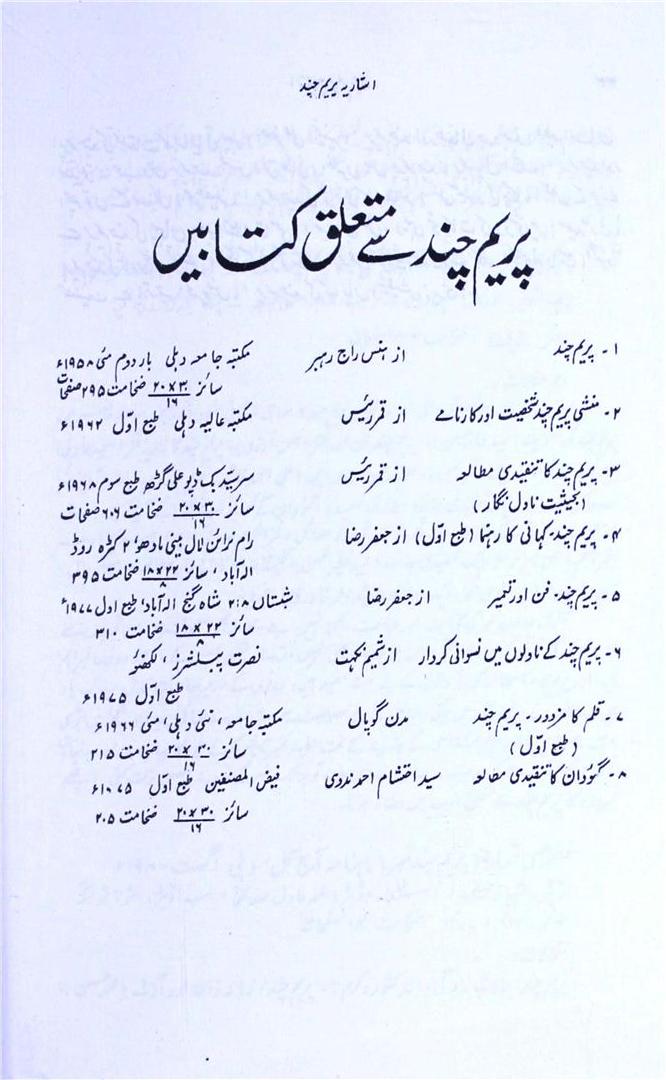 اشاریہ پریم چند
پریم چند سے متعلق کتابیں
۱ - پریم چند از ہنس راج رہبر مکتبہ جامعہ دہلی بار دوم مئی ۱۹۵۸ء
سائز ۲۰×۳۰/۱۶ ضخامت ۲۹۵ صفحات
۲ - منشی پریم چند شخصیت اور کارنامے از قمر رئیس مکتبہ عالیہ دہلی طبع اوّل ۱۹۶۲ء
۳ - پریم چند کا تنقیدی مطالعہ از قمر رئیس سرسیّد بک ڈپو علی گڑھ طبع سوم ۱۹۶۸ء
(بحیثیت ناول نگار) سائز ۲۰×۳۰/۱۶ ضخامت ۶۰۶ صفحات
۴ - پریم چند۔ کہانی کا رہنما (طبع اوّل) از جعفر رضا رام نرائن لال بینی مادھو ۲ کٹرہ روڈ
الہ آباد، سائز ۱۸×۲۲/۸ ضخامت ۳۹۵
۵ - پریم چند۔ فن اور تعمیر از جعفر رضا شبستاں ۲۱۸ شاہ گنج الہ آباد طبع اول ۱۹۷۷ء
سائز ۱۸×۲۲/۸ ضخامت ۳۱۰
۶ - پریم چند کے ناولوں میں نسوانی کردار از شمیم نکہت نصرت پبلشرز، لکھنؤ
طبع اوّل ۱۹۷۵ء
۷ - قلم کا مزدور - پریم چند مدن گوپال مکتبہ جامعہ، نئی دہلی، مئی ۱۹۶۶ء
(طبع اوّل) سائز ۲۰×۳۰/۱۶ ضخامت ۲۱۵
۸ - گئودان کا تنقیدی مطالعہ سید احتشام احمد ندوی فیض المصنفین طبع اوّل
سائز ۲۰×۳۰/۱۶ ضخامت ۲۰۵